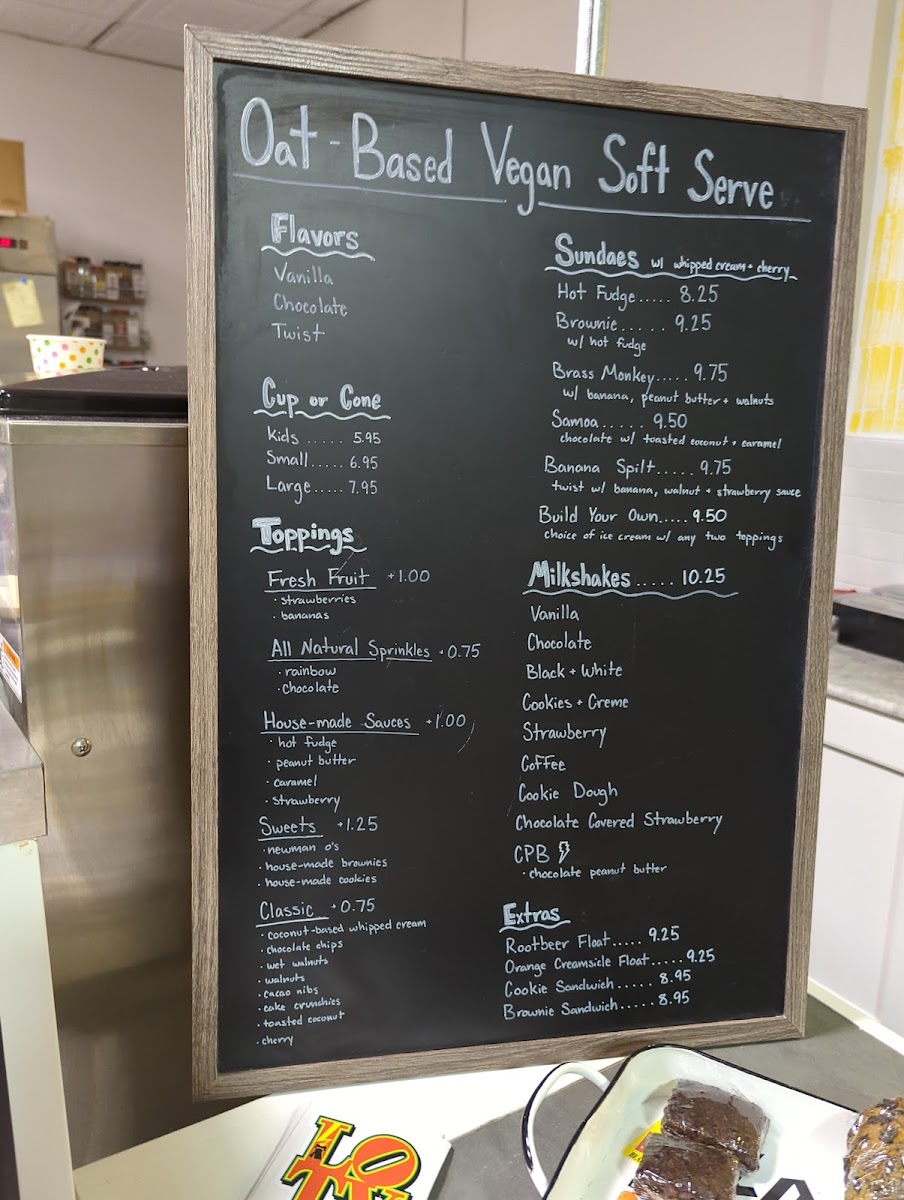 Oat-Based Vegan Soft Serve
Flavors
Vanilla
Chocolate
Twist
Cup or Cone
Kids ...... 5.95
Small ..... 6.95
Large ..... 7.95
Toppings
Fresh Fruit +1.00
· strawberries
· bananas
All Natural Sprinkles +0.75
· rainbow
· chocolate
House-made Sauces +1.00
· hot fudge
· peanut butter
· caramel
· strawberry
Sweets +1.25
· newman o's
· house-made brownies
· house-made cookies
Classic +0.75
· coconut-based whipped cream
· chocolate chips
· wet walnuts
· walnuts
· cacao nibs
· cake crunchies
· toasted coconut
· cherry
Sundaes w/ whipped cream + cherry
Hot Fudge ..... 8.25
Brownie ...... 9.25
w/ hot fudge
Brass Monkey ..... 9.75
w/ banana, peanut butter + walnuts
Samoa ...... 9.50
chocolate w/ toasted coconut + caramel
Banana Spilt ..... 9.75
twist w/ banana, walnut + strawberry sauce
Build Your Own ..... 9.50
choice of ice cream w/ any two toppings
Milkshakes ..... 10.25
Vanilla
Chocolate
Black + White
Cookies + Creme
Strawberry
Coffee
Cookie Dough
Chocolate Covered Strawberry
CPB
· chocolate peanut butter
Extras
Rootbeer Float ..... 9.25
Orange Creamsicle Float ..... 9.25
Cookie Sandwich ..... 8.95
Brownie Sandwich ..... 8.95
LO